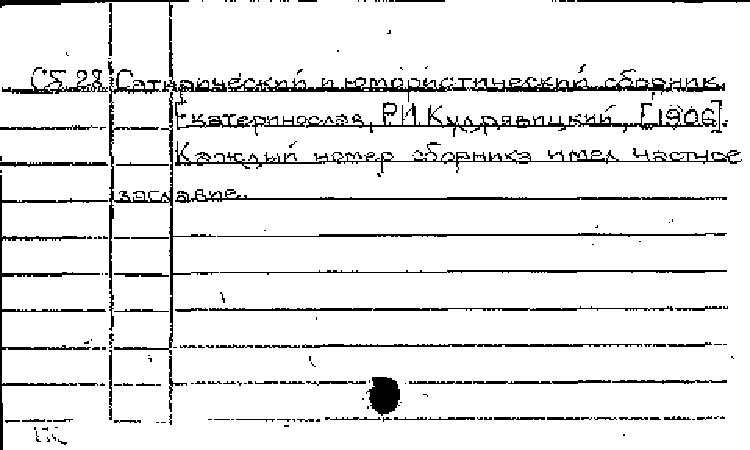 СБ 22 Сатирический и юмористический сборник.
Екатеринослав, Р.И. Кулрявицкий, [1906].
Каждый номер сборника имел частное
заглавие.